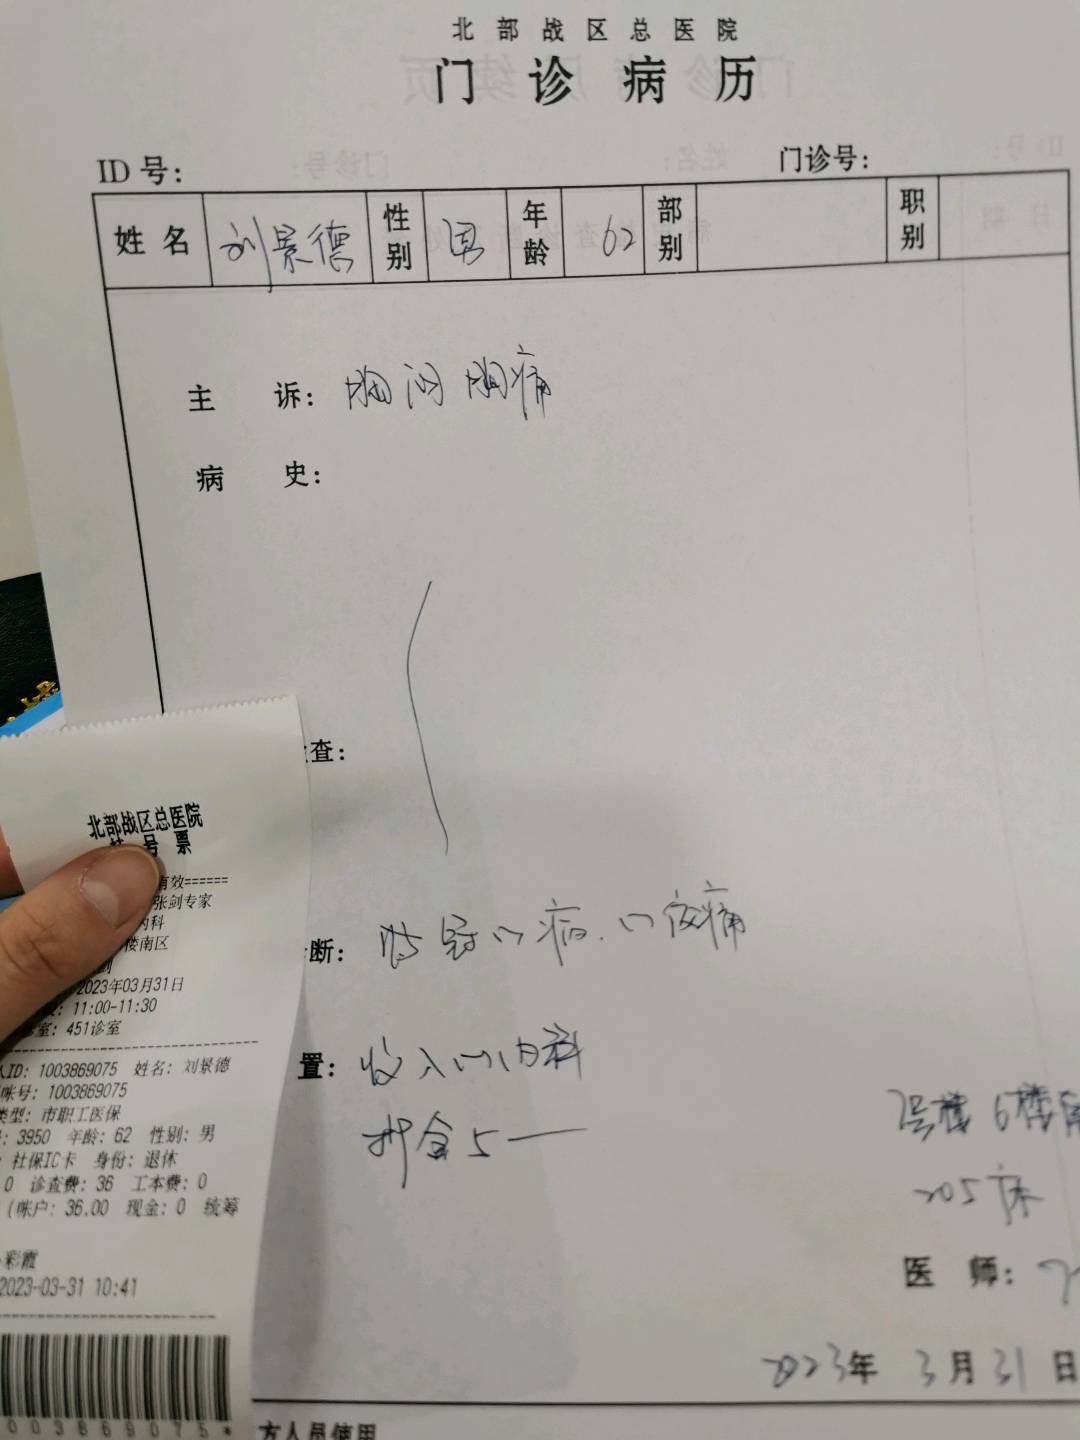 北部战区总医院
门诊病历
ID号：
门诊号：
姓名 刘景德 性别 男 年龄 62 部别 职别
主诉：胸闷胸痛
病史：
查：
断：冠心病.心绞痛
置：收入心内科
押金5一
2号楼 6楼南
205床
医师：
2023年3月31日
方人员使用
北部战区总医院
挂号票
有效======
张剑专家
内科
楼南区
剑
2023年03月31日
：11:00-11:30
室：451诊室
人ID：1003869075 姓名：刘景德
帐号：1003869075
类型：市职工医保
：3950 年龄：62 性别：男
：社保IC卡 身份：退休
0 诊查费：36 工本费：0
（帐户：36.00 现金：0 统筹
彩霞
2023-03-31 10:41
003869075*